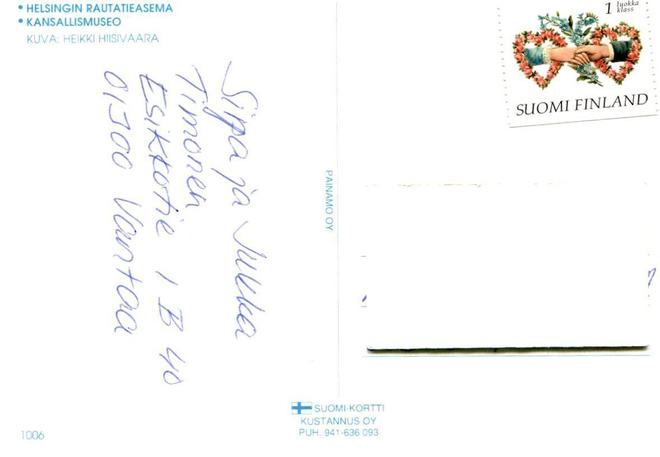 • HELSINGIN RAUTATIEASEMA
• KANSALLISMUSEO
KUVA: HEIKKI HIISIVAARA
1 luokka
klass
SUOMI FINLAND
Sirpa ja Jukka
Timonen
Esikkotie 1 B 40
01300 Vantaa
PAINAMO OY
SUOMI-KORTTI
KUSTANNUS OY
PUH. 941-636 093
1006